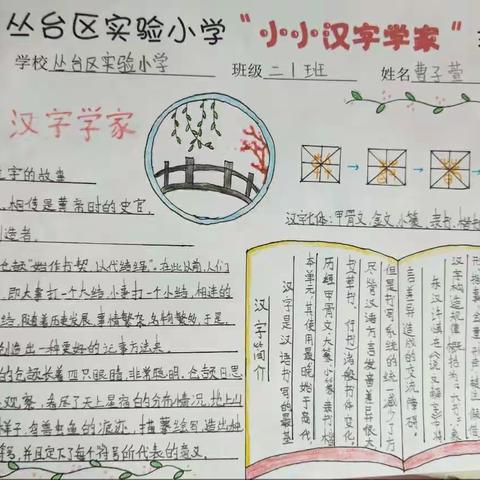 丛台区实验小学"小小汉字学家"
学校丛台区实验小学 班级二11班 姓名曹子萱
汉字学家
字的故事
相传是黄帝时的史官,
造者。
"始作书契,以代结绳"。在此以前,人们
即大事打一个大结,小事打一个小结,相连的
结,随着历史发展,事情繁杂,名物繁多,于是,
创造出一种更好的记事方法来。
的仓颉长着四只眼睛,非常聪明。仓颉日思
观察,看尽了天上星宿的分布情况、地上山
样子、鸟兽虫鱼的痕迹,描摹绘写,造出种
号,并且定下了每个符号所代表的意义。
汉字字体:甲骨文、金文、小篆、隶书、楷书
汉字简介
汉字是汉语书写的最基
本单元,其使用最晚始于商代,
历经甲骨文、大篆、小篆、隶书、楷
书、草书、行书)诸般书体变化。
尽管汉语方言发音差异很大,
但是书写系统的统一减少了方
言差异造成的交流障碍。
东汉许慎在《说文解字》中将
汉字构造规律概括为"六书":象